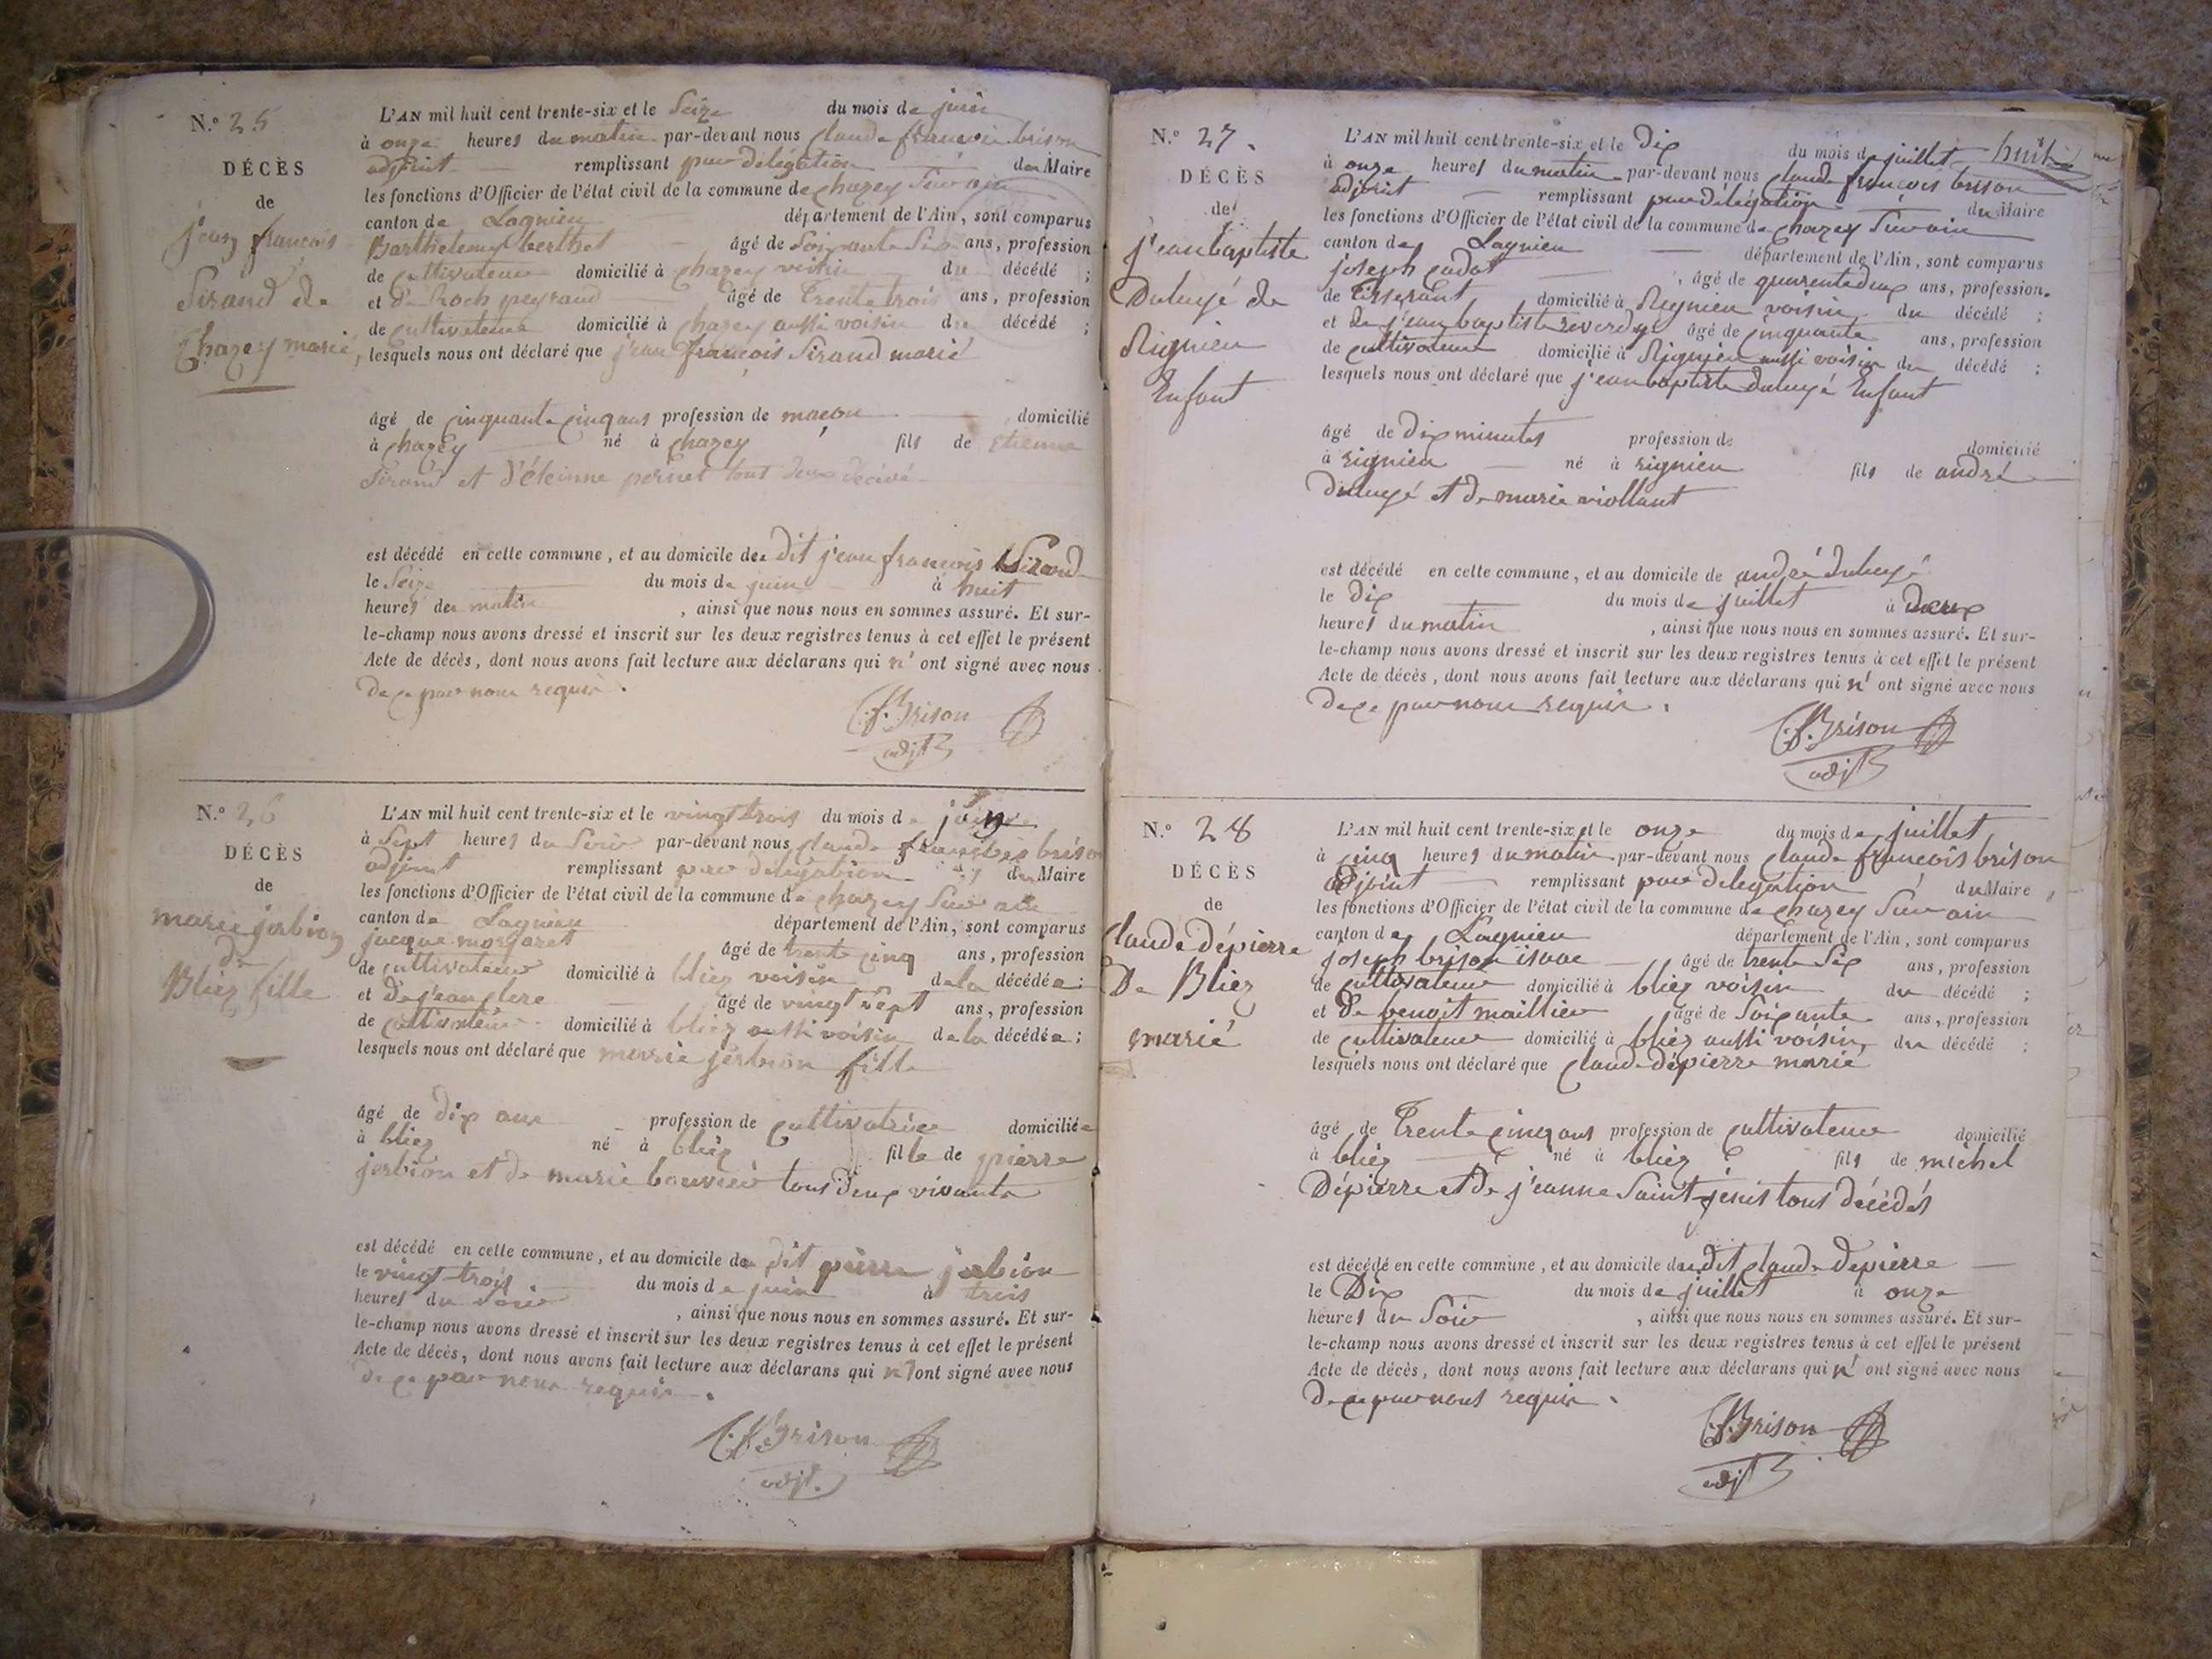 N.° 25
DÉCÈS
de
jean francois
Sirand de
Chazey marié
L'AN mil huit cent trente-six et le Seize du mois de juin
à onze heures du matin par-devant nous Claude francois brison
adjoint remplissant par délégation du Maire
les fonctions d'Officier de l'état civil de la commune de chazey Sur ain
canton de Lagnieu département de l'Ain, sont comparus
Barthelemy berthet âgé de Soixante Six ans, profession
de Cultivateur domicilié à Chazey voisin du décédé ;
et de Roch peyraud âgé de Trente trois ans, profession
de Cultivateur domicilié à chazey aussi voisin du décédé ;
lesquels nous ont déclaré que jean François Sirand marié
âgé de Cinquante Cinq ans profession de maçon domicilié
à Chazey né à Chazey fils de Etienne
Sirand et d'éteinne pernet tout deux décédé
est décédé en cette commune, et au domicile du dit jean francois Sirand
le Seize du mois de juin à huit
heures du matin , ainsi que nous nous en sommes assuré. Et sur-
le-champ nous avons dressé et inscrit sur les deux registres tenus à cet effet le présent
Acte de décès, dont nous avons fait lecture aux déclarans qui n' ont signé avec nous
de ce par nous requis.
C. f. Brison
adjt
N.° 26
DÉCÈS
de
marie jerbion
de
Bliez fille
L'AN mil huit cent trente-six et le vingt trois du mois de juin
à Sept heures du Soir par-devant nous Claude brison
adjoint remplissant par délégation du Maire
les fonctions d'Officier de l'état civil de la commune de chazey Sur ain
canton de Lagnieu département de l'Ain, sont comparus
jacque morgaret âgé de trente Cinq ans, profession
de Cultivateur domicilié à bliez voisin de la décédée ;
et de jean clere âgé de vingt Sept ans, profession
de Cultivateur domicilié à bliez aussi voisin de la décédée ;
lesquels nous ont déclaré que marie jerbion fille
âgé de dix ans profession de Cultivatrice domiciliée
à bliez né à bliez fille de pierre
jerbion et de marie bouvier tous deux vivants
est décédé en cette commune, et au domicile du dit pierre jerbion
le vingt-trois du mois de juin à trois
heures du Soir , ainsi que nous nous en sommes assuré. Et sur-
le-champ nous avons dressé et inscrit sur les deux registres tenus à cet effet le présent
Acte de décès, dont nous avons fait lecture aux déclarans qui n' ont signé avec nous
de ce par nous requis.
C. f. Brison
adjt.
N.° 27.
DÉCÈS
de
j'ean baptiste
Duluyé de
Rignieu
Enfant
L'AN mil huit cent trente-six et le Dix du mois de juillet huit
à onze heures du matin par-devant nous Claude françois brison
adjoint remplissant par délégation du Maire
les fonctions d'Officier de l'état civil de la commune de Chazey Sur ain
canton de Lagnieu département de l'Ain, sont comparus
joseph Cadot , âgé de quarente deux ans, profession
de Tisserant domicilié à Rignieu voisin du décédé ;
et de j'ean baptiste reverdy âgé de Cinquante ans, profession
de Cultivateur domicilié à Rignieu aussi voisin du décédé ;
lesquels nous ont déclaré que j'ean baptiste Duluyé Enfant
âgé de Dix minutes profession de domicilié
à rignieu né à rignieu fils de andré
Duluyé et de marie viollant
est décédé en cette commune, et au domicile de andré duluyé
le dix du mois de juillet à Deux
heures du matin , ainsi que nous nous en sommes assuré. Et sur-
le-champ nous avons dressé et inscrit sur les deux registres tenus à cet effet le présent
Acte de décès, dont nous avons fait lecture aux déclarans qui n' ont signé avec nous
de ce par nous requis.
C. f. Brison
adjt
N.° 28
DÉCÈS
de
Claude dépierre
De Bliez
marié
L'AN mil huit cent trente-six et le onze du mois de juillet
à Cinq heures du matin par-devant nous Claude françois brison
adjoint remplissant par délégation du Maire
les fonctions d'Officier de l'état civil de la commune de Chazey Sur ain
canton de Lagnieu département de l'Ain, sont comparus
joseph brison isaac âgé de trente Six ans, profession
de Cultivateur domicilié à bliez voisin du décédé ;
et de benoit maillier âgé de Soixante ans, profession
de Cultivateur domicilié à bliez aussi voisin du décédé ;
lesquels nous ont déclaré que Claude dépierre marié
âgé de Trente Cinq ans profession de Cultivateur domicilié
à bliez né à bliez fils de michel
Dépierre et de j'eanne Saint-jenis tous décédés
est décédé en cette commune, et au domicile du dit Claude dépierre
le Dix du mois de juillet à onze
heures du Soir , ainsi que nous nous en sommes assuré. Et sur-
le-champ nous avons dressé et inscrit sur les deux registres tenus à cet effet le présent
Acte de décès, dont nous avons fait lecture aux déclarans qui n' ont signé avec nous
de ce par nous requis.
C. f. Brison
adjt